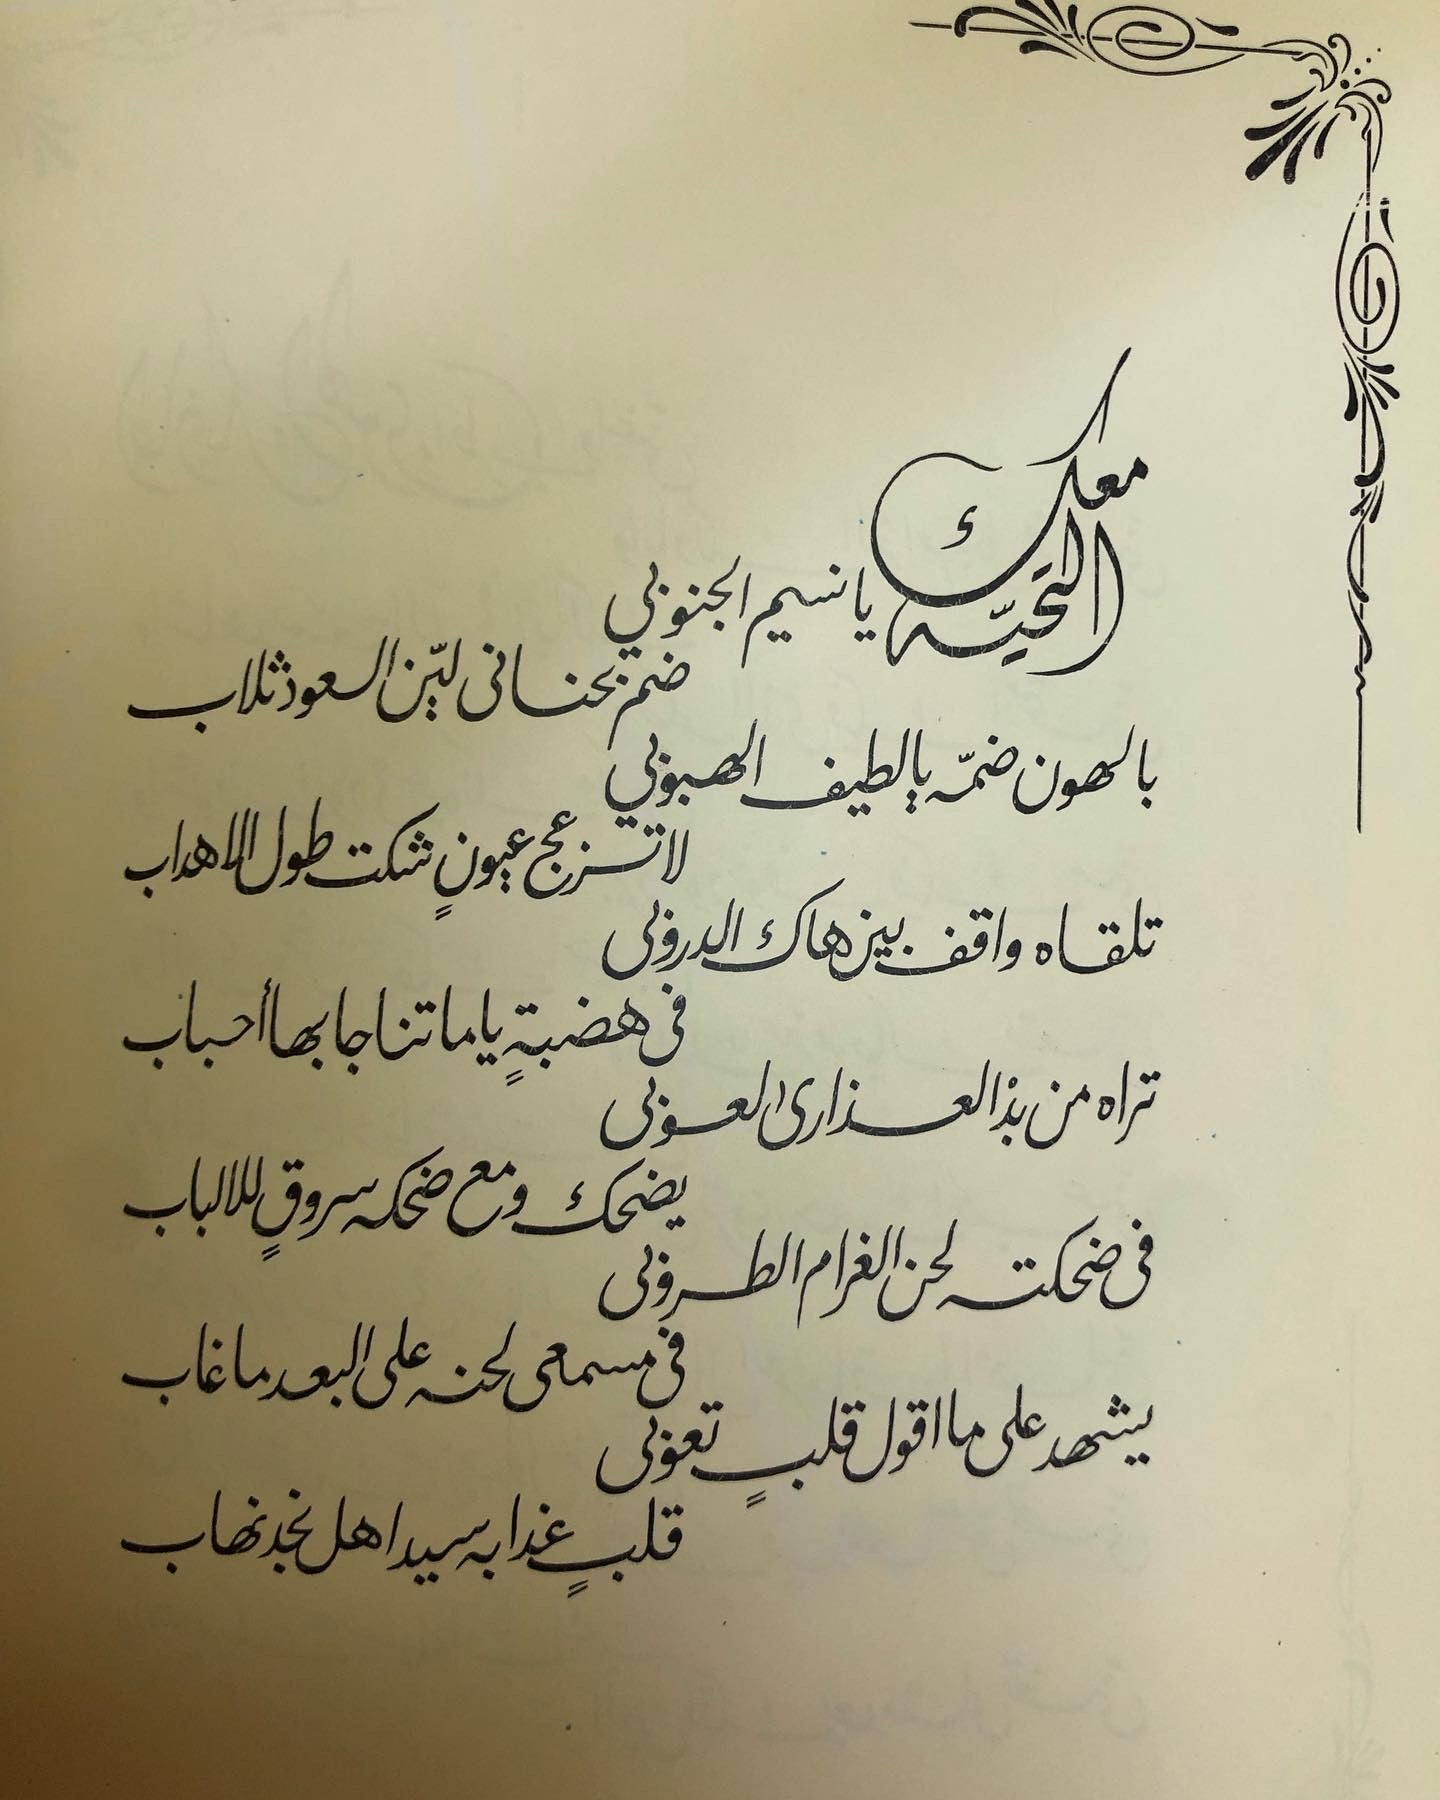 معك التحيّه يا نسيم الجنوبي
ضم بحناني ليّن العود ثلاب
بالهون ضمّه يالطيف الهبوبي
لا تزعج عيونٍ شكت طول الاهداب
تلقاه واقف بين هاك الدروبي
في هضبةٍ ياما تناجا بها أحباب
تراه من بذ العذارى العوبي
يضحك ومع ضحكه سروقٍ للالباب
في ضحكته لحن الغرام الطروبي
في مسمعى لحنه على البعد ما غاب
يشهد على ما اقول قلبٍ تعوبي
قلبٍ غدابه سيد اهل نجد نهاب